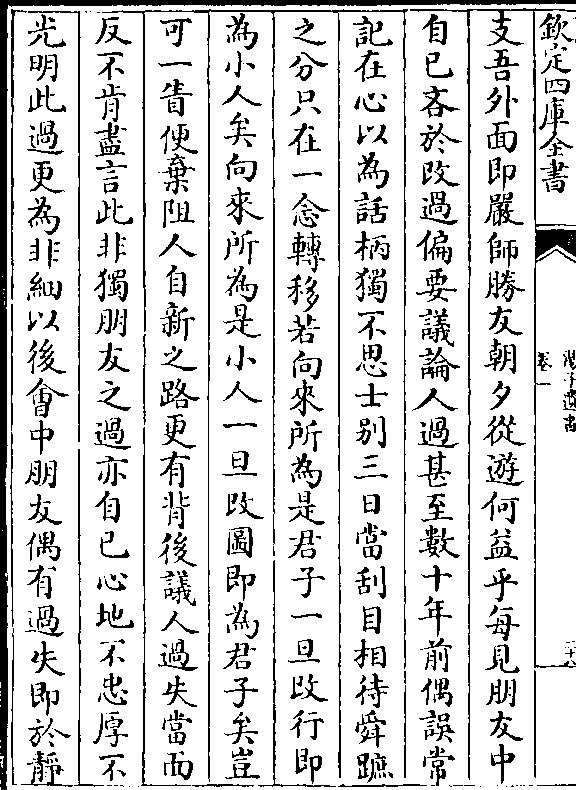 欽定四庫全書
卷一
支吾外面即嚴師勝友朝夕從遊何益乎每見朋友中
自已吝於改過偏要議論人過甚至數十年前偶誤常
記在心以為話柄獨不思士别三日當刮目相待舜蹠
之分只在一念轉移若向來所為是君子一旦改行即
為小人矣向來所為是小人一旦改圖即為君子矣豈
可一眚便棄阻人自新之路更有背後議人過失當面
反不肯盡言此非獨朋友之過亦自已心地不忠厚不
光明此過更為非細以後會中朋友偶有過失即於靜